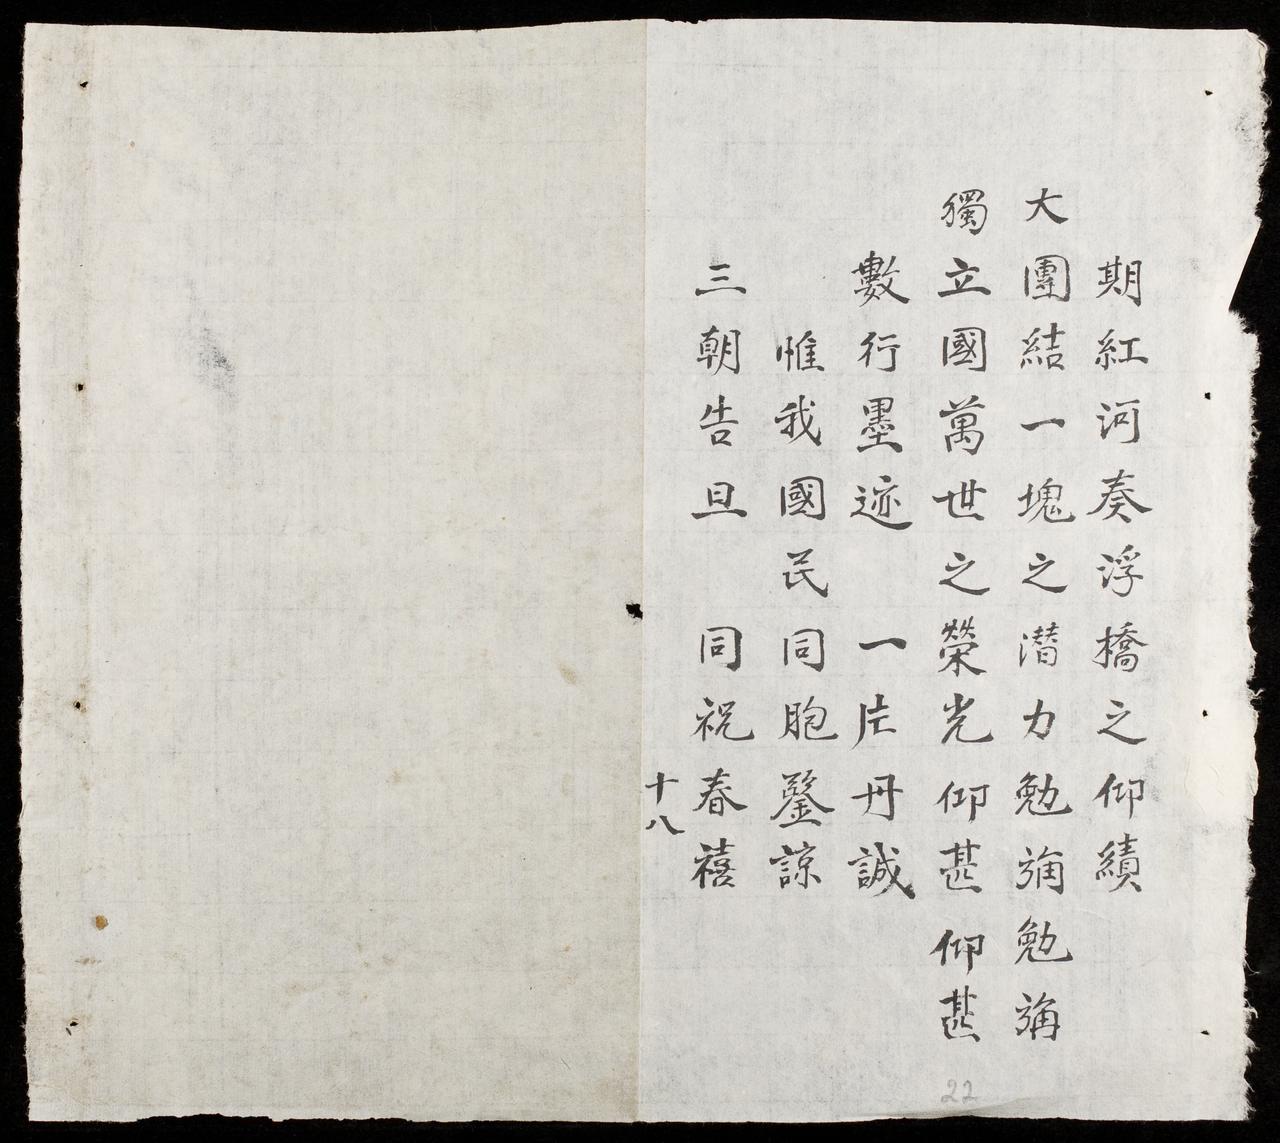 期紅河奏浮橋之仰績
大團結一塊之潜力勉旃勉旃
獨立國萬世之榮光仰甚仰甚
數行墨迹 一片丹誠
惟我國民同胞鑒諒
三朝告旦 同祝春禧
十八
22